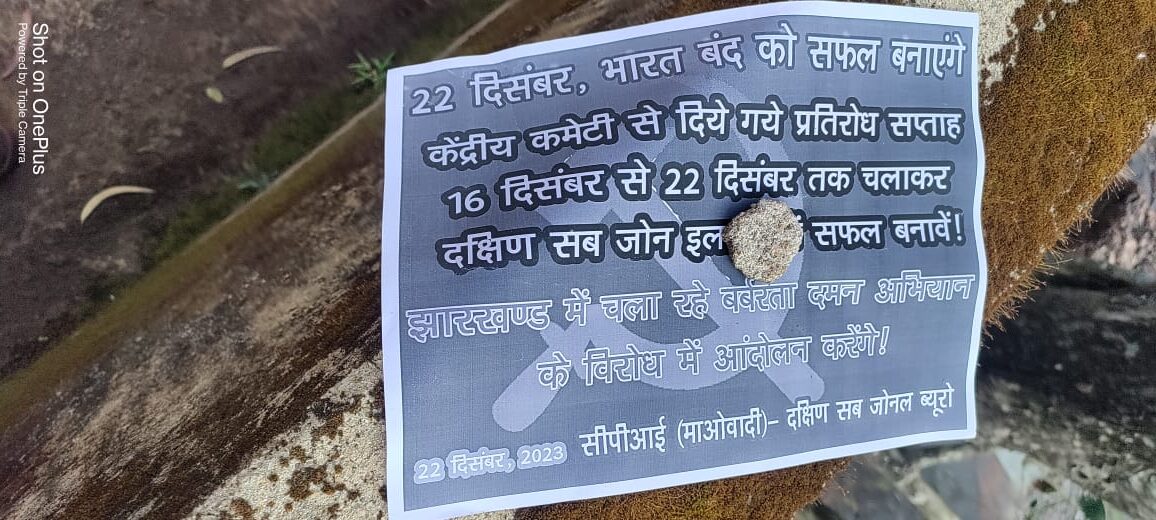 22 दिसंबर, भारत बंद को सफल बनाएंगे
केंद्रीय कमेटी से दिये गये प्रतिरोध सप्ताह
16 दिसंबर से 22 दिसंबर तक चलाकर
दक्षिण सब जोन सफल बनावें!
झारखण्ड में चला रहे बर्बरता दमन अभियान
के विरोध में आंदोलन करेंगे!
सीपीआई (माओवादी)- दक्षिण सब जोनल ब्यूरो
22 दिसंबर, 2023
Shot on OnePlus
Powered by Triple Camera